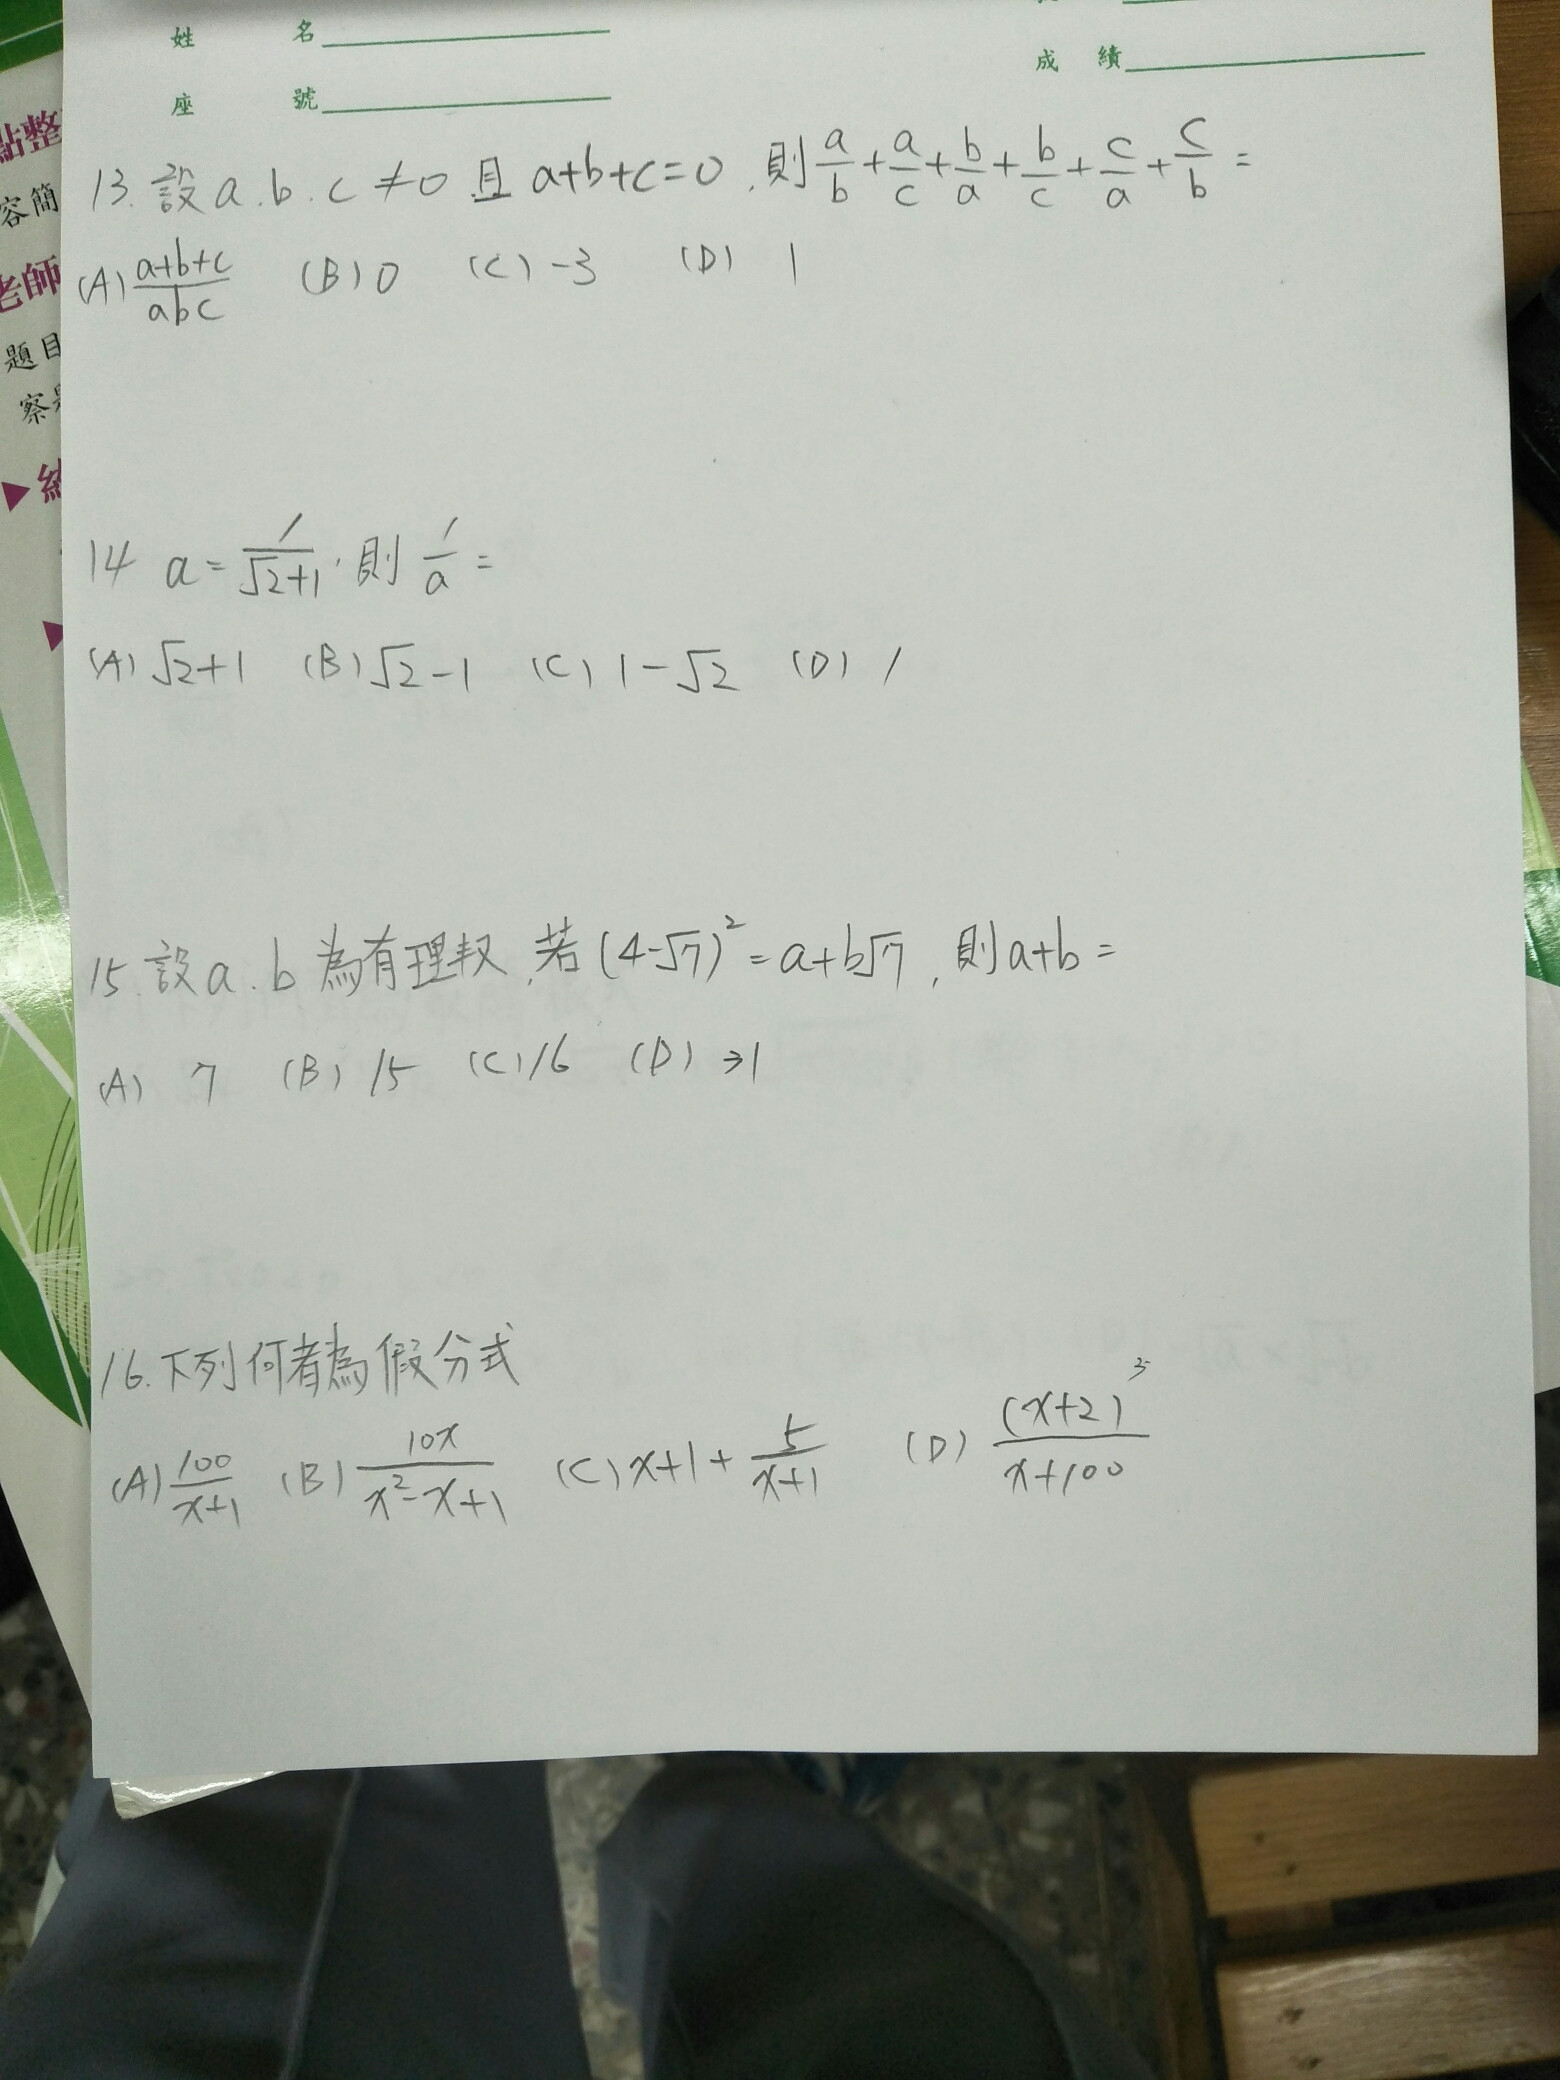 姓 名
座 號
成 績
點整
容簡
老師
題目
察
13. 設a.b.c≠0且a+b+c=0,則a/b+a/c+b/a+b/c+c/a+c/b=
(A) (a+b+c)/abc (B) 0 (C) -3 (D) 1
14 a=1/(√2+1),則1/a=
(A) √2+1 (B) √2-1 (C) 1-√2 (D) 1
15.設a.b為有理数,若(4-√7)²=a+b√7,則a+b=
(A) 7 (B) 15 (C) 16 (D) 31
16.下列何者為假分式
(A) 100/(x+1) (B) 10x/(x²-x+1) (C) x+1+5/(x+1) (D) (x+2)³/(x+100)